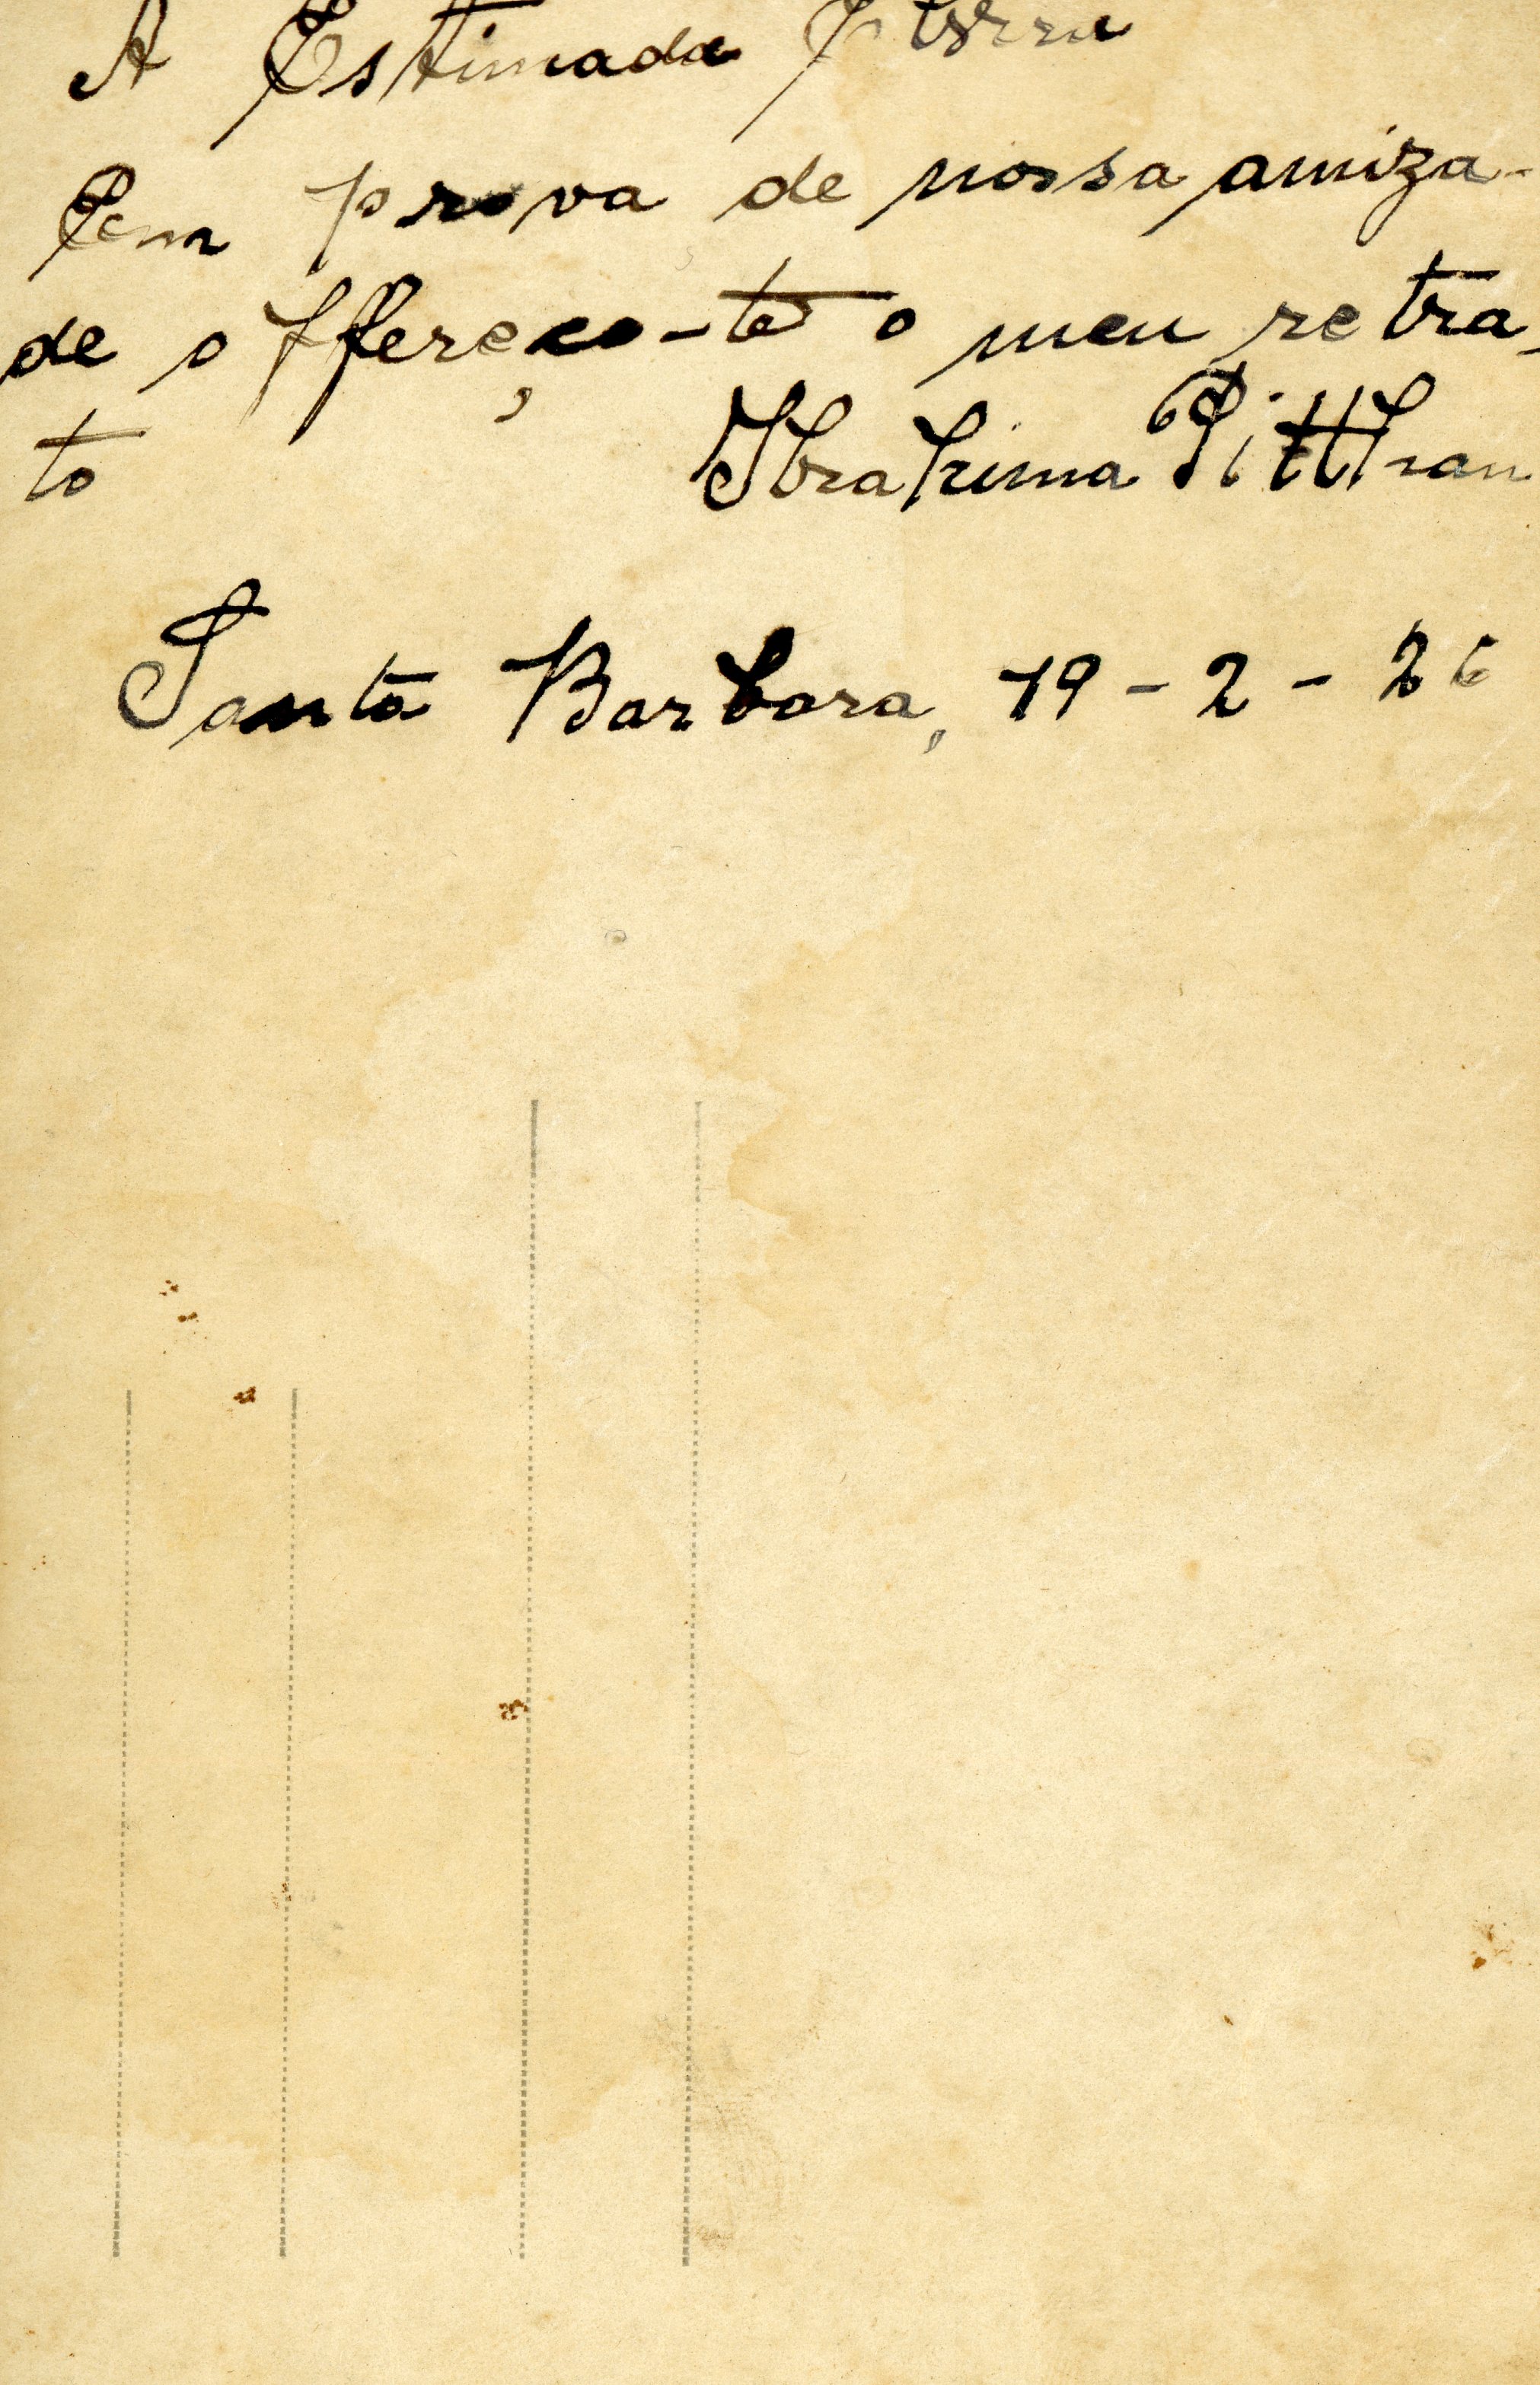 A Estimada
Em prova de nossa amiza-
de offereço-te o meu retra-
to Ibrahima Pitthan
Santa Barbara, 19-2-26